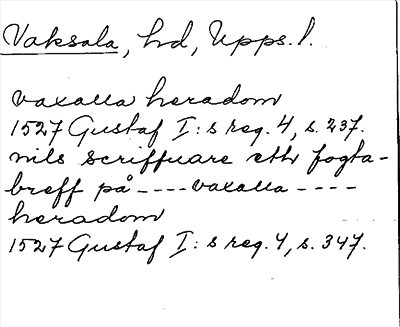 Vaksala, hd, Upps. l.
vaxalla heradom
1527 Gustaf I:s reg. 4, s. 237.
nils scriffuare eth fogta-
breff på ---- vaxalla ----
heradom
1527 Gustaf I:s reg. 4, s. 347.